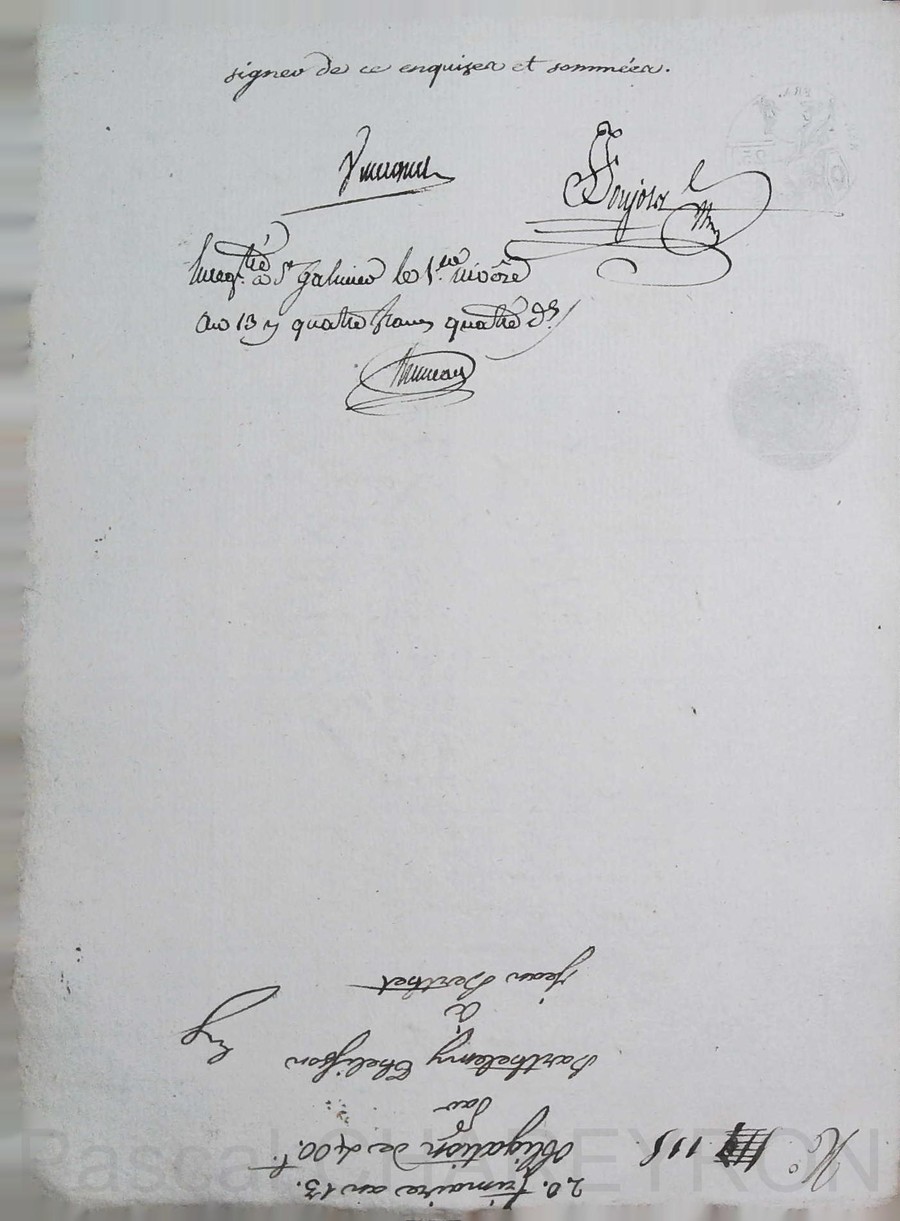 signer de ce enquizes et sommées.
Enregtré à St Galmier le 1er nivôse
an 13 y quatre francs quatre ds
20. frimaire an 13.
Obligation de 400 f.
par
Barthelemy Thelisson
à
Jean Berthet
No. 115
Pascal CHAPEYRON